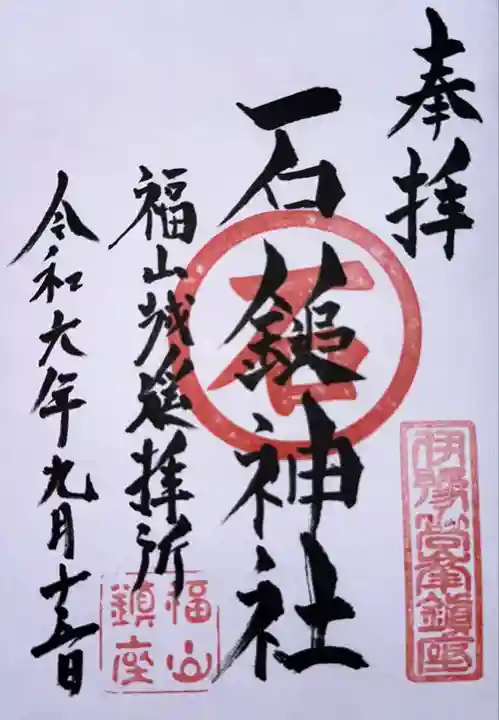 奉拝
石鎚神社
福山城遥拝所
令和六年九月十五日
石
福山
鎮座